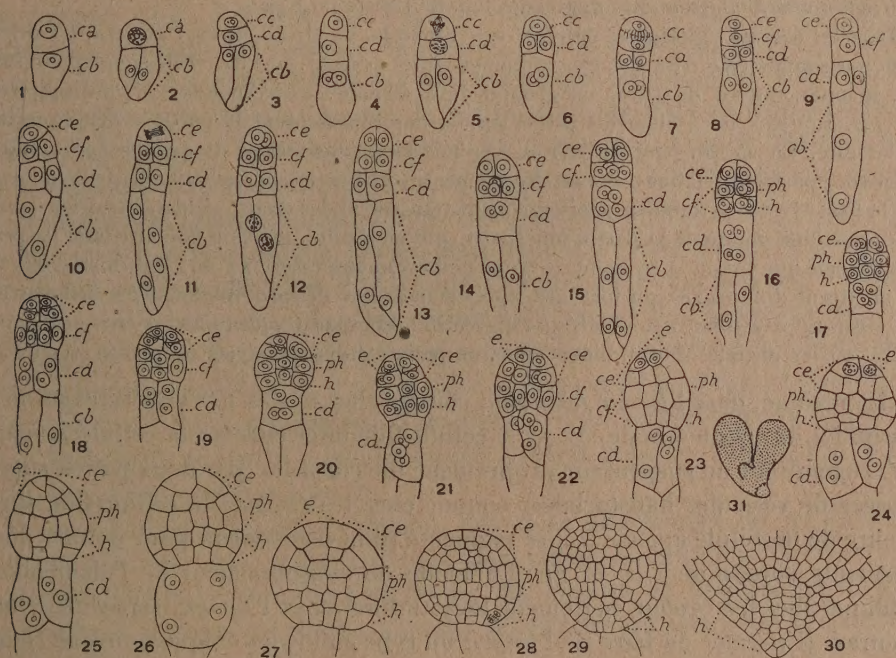 ca
cb
1
ca
cb
2
cc
cd
cb
3
cc
cd
cb
4
cc
cd
cb
5
cc
cd
cb
6
cc
ca
cb
7
ce
cf
cd
cb
8
ce
cf
cd
cb
9
ce
cf
cd
cb
10
ce
cf
cd
cb
11
ce
cf
cd
cb
12
ce
cf
cd
cb
13
ce
cf
cd
cb
14
ce
cf
cd
cb
15
ce
cf
ph
h
cd
cb
16
ce
ph
h
cd
17
ce
cf
cd
cb
18
ce
cf
cd
19
ce
ph
h
cd
20
e
ce
ph
h
cd
21
e
ce
cf
cd
22
e
ce
ph
cf
h
cd
23
31
ce
ph
h
cd
24
e
ce
ph
h
cd
25
ce
ph
h
26
e
ce
ph
h
27
ce
ph
h
28
h
29
h
30